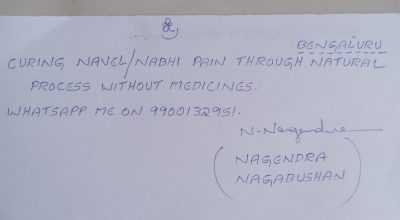 BENGALURU
CURING NAVEL/NABHI PAIN THROUGH NATURAL
PROCESS WITHOUT MEDICINES.
WHATSAPP ME ON 9900132951.
N. Nagendra
(NAGENDRA
NAGABUSHAN)